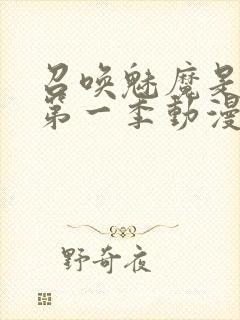 召喚魅魔是
第一季動漫
野奇夜